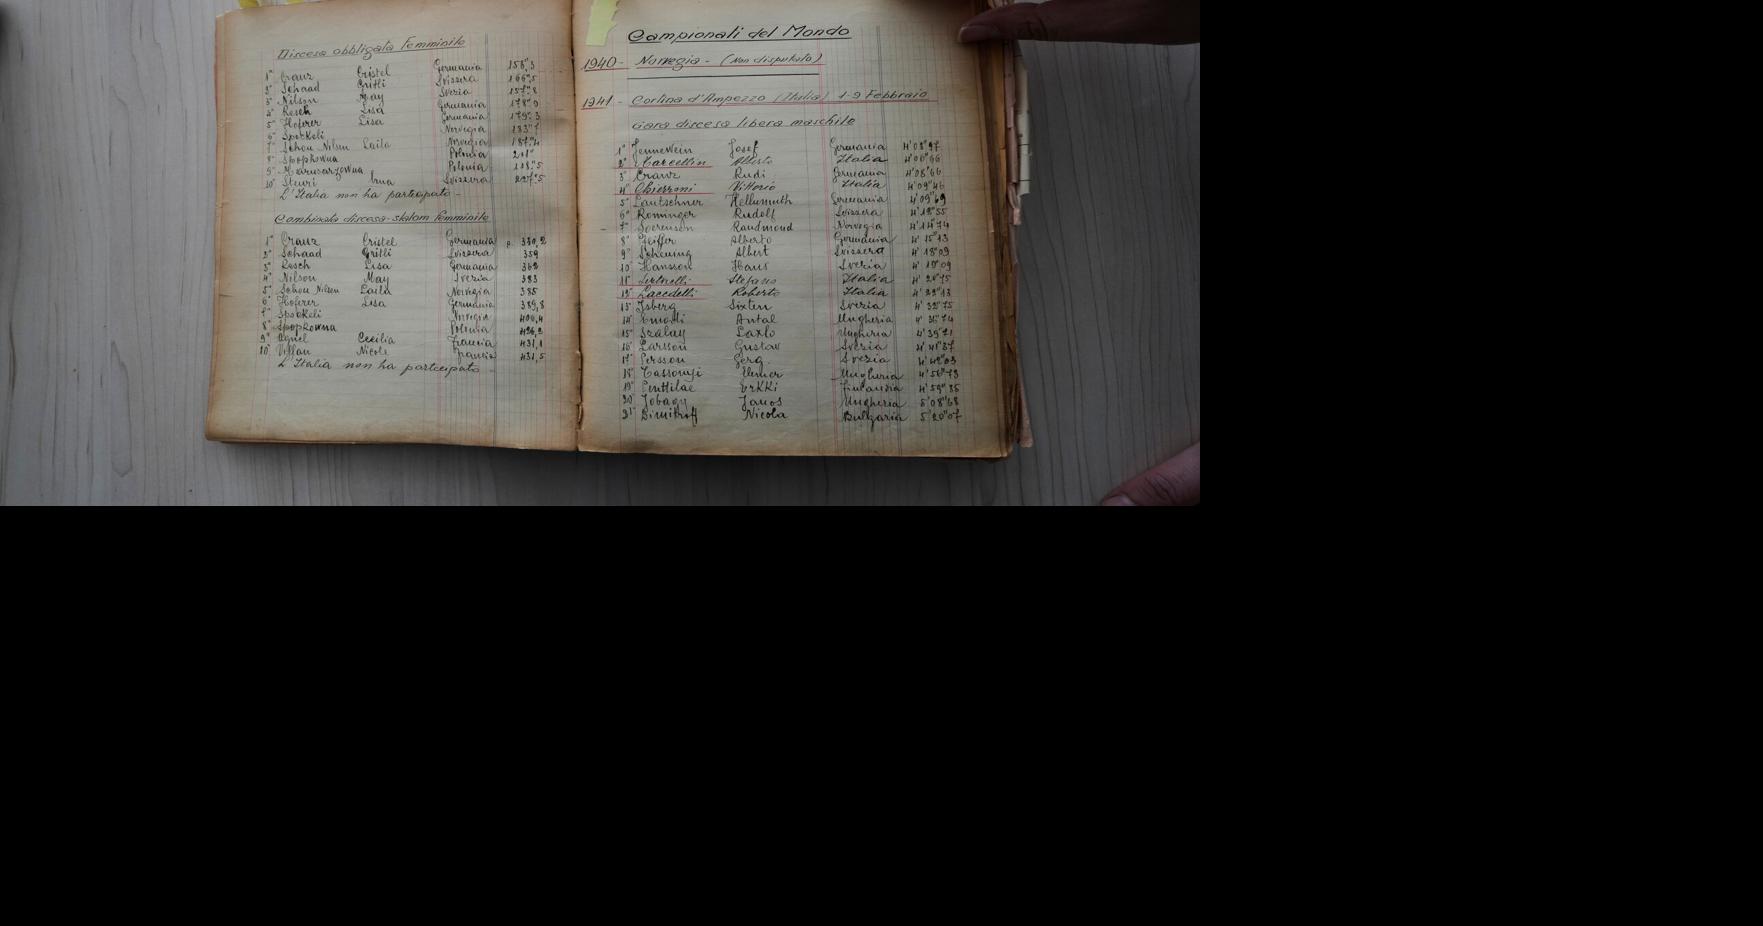 Discesa obbligata Femminile
1° Cranz Cristel Germania
2° Schaad Gritli Svizzera 166"5
3° Nilson May Svezia 157"8
4° Resch Lisa Germania 178"9
5° Hoferer Lisa Germania 179"3
6° Spockeli Norvegia 183"7
7° Schou Nilsen Laila Norvegia 187"4
8° Spopkowna Polonia
9° Marusarzowna Polonia
10° Steuri Svizzera 227"5
L'Italia non ha partecipato -
Combinata discesa-slalom femminile
1° Cranz Cristel Germania p. 330,2
2° Schaad Gritli Svizzera 359
3° Resch Lisa Germania 362
4° Nilson May Svezia 383
5° Schou Nilsen Laila Norvegia 385
6° Hoferer Lisa Germania 389,8
7° Spockeli Norvegia 400,4
8° Spopkowna Polonia 426,2
9° Agnel Cecilia Francia 431,1
10° Villan Nicole Francia 431,5
L'Italia non ha partecipato -
Campionati del Mondo
1940 - Norvegia - (Non disputato)
1941 - Cortina d'Ampezzo (Italia) 1-9 Febbraio
Gara discesa libera maschile
1° Jennewein Josef Germania 4'03"97
2° Marcellin Alberto Italia 4'06"66
3° Cranz Rudi Germania 4'08"66
4° Chierroni Vittorio Italia 4'09"46
5° Lantschner Hellumuth Germania 4'09"69
6° Rominger Rudolf Svizzera 4'12"55
7° Soerensen Randmond Norvegia 4'14"74
8° Pfeiffer Alberto Germania 4'15"13
9° Scheuing Albert Svizzera 4'18"09
10° Hansson Hans Svezia 4'19"09
11° Sertorelli Stefano Italia
Lacedelli Roberto Italia
13° Isberg Sixten Svezia 4'32"75
14° Antal Ungheria
15° Szalay Laxlo Ungheria 4'39"71
16° Larsson Gustav Svezia 4'41"37
17° Persson Svezia 4'42"03
18° Ungheria 4'56"73
19° Penttilae Erkki Finlandia 4'59"35
20° Jobagy Janos Ungheria 5'08"68
21° Dimitroff Nicola Bulgaria 5'20"07